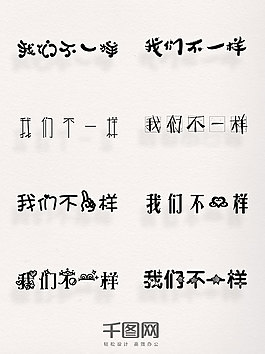 我们不一样 我们不一样
我们不一样 我们不一样
我们不样 我们不样
我们不一样 我们不一样
千图网
轻松设计 高效办公